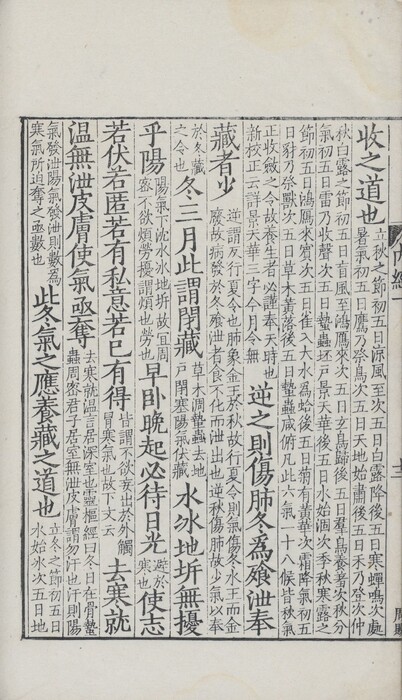 收之道也
立秋之節初五日涼風至次五日白露降後五日寒蟬鳴次處
暑氣初五日鷹乃祭鳥次五日天地始肅後五日禾乃登次仲
秋白露之節初五日盲風至鴻鴈來次五日玄鳥歸後五日羣鳥養羞次秋分
氣初五日雷乃收聲次五日蟄蟲坯戶景天華後五日水始涸次季秋寒露之
節初五日鴻鴈來賓次五日雀入大水爲蛤後五日菊有黃華次霜降氣初五
日豺乃祭獸次五日草木黃落後五日蟄蟲咸俯凡此六氣一十八候皆秋氣
正收斂之令故養生者必謹奉天時也
新校正云詳景天華三字今月令無
逆之則傷肺冬爲飧泄奉
藏者少
逆謂反行夏令也肺象金王於秋故行夏令則氣傷冬水王而金
廢故病發於冬飧泄者食不化而泄出也逆秋傷肺故少氣以奉
於冬藏
之令也
冬三月此謂閉藏
草木凋蟄蟲去地
戶閉塞陽氣伏藏
水冰地坼無擾
乎陽
陽氣下沈水冰地坼故宜周
密不欲煩勞擾謂煩也勞也
早臥晚起必待日光
避於
寒也
使志
若伏若匿若有私意若已有得
皆謂不欲妄出於外觸
冒寒氣也故下文云
去寒就
溫無泄皮膚使氣亟奪
去寒就溫言居深室也靈樞經曰冬日在骨蟄
蟲周密君子居室無泄皮膚謂勿汗也汗則陽
氣發泄陽氣發泄則數爲
寒氣所迫奪之亟數也
此冬氣之應養藏之道也
立冬之節初五日
水始冰次五日地